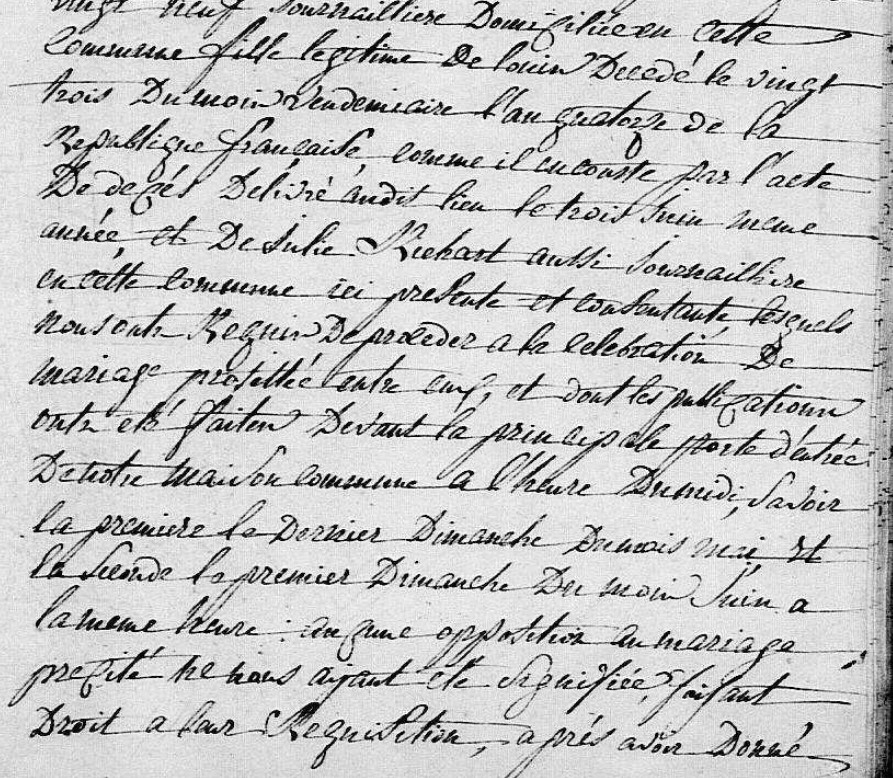 vingt neuf Journailliere Domiçiliée en cette
Commune fille legitime De louin Decedé le vingt
trois Du moin vendemiaire l'an quatorze de la
Republique française, comme il en conste par l'acte
De deçés Delivré audit lieu le trois Juin meme
année, et De Julie Richart aussi Journailliere
en cette commune ici presente et consentante, lesquels
nous ont Requin De proceder a la celebration De
mariage projettée entre eux, et dont les publiçationn
ont eté faiten Devant la principale porte d'entrée
De notre maison commune a l'heure Du midi, savoir
la premiere le Dernier Dimanche Du mois mai, et
la seconde le premier Dimanche Du moin Juin a
la meme heure : auçune opposition au mariage
preçité ne nous ayant eté signifiée, faisant
Droit a leur Requisition, aprés avoir Donné